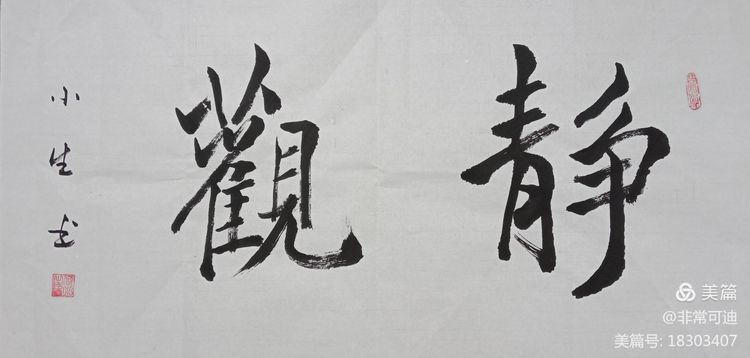 静觀
小生书
美篇
@非常可迪
美篇号: 18303407